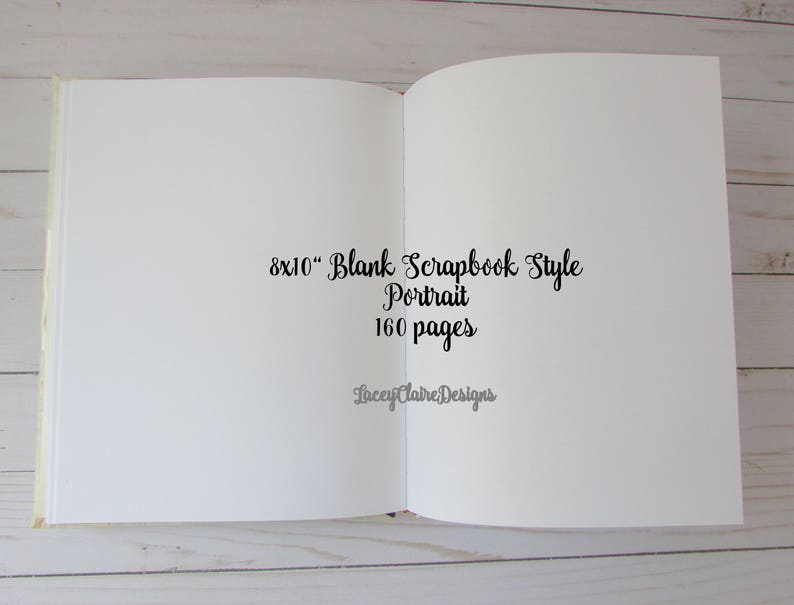 8x10“ Blank Scrapbook Style
Portrait
160 pages
LaceyClaireDesigns